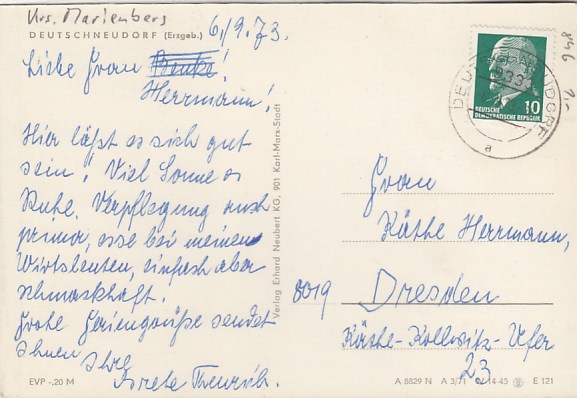 Krs. Marienberg
DEUTSCHNEUDORF (Erzgeb.)
6./9.73.
Liebe Frau Benke!
Herrmann!
Hier läßt es sich gut
sein! Viel Sonne u
Ruhe. Verpflegung auch
prima, esse bei meinen
Wirtsleuten, einfach aber
schmackhaft.
Frohe Feriengrüße sendet
Ihnen
Ihre
Grete
EVP -.20 M
Verlag Erhard Neubert KG, 901 Karl-Marx-Stadt
10
DEUTSCHE
DEMOKRATISCHE REPUBLIK
a
Frau
Käthe Herrmann,
8019 Dresden
Käthe-Kollwitz-Ufer
23
A 8829 N A 3/71 IV-14-45 E 121